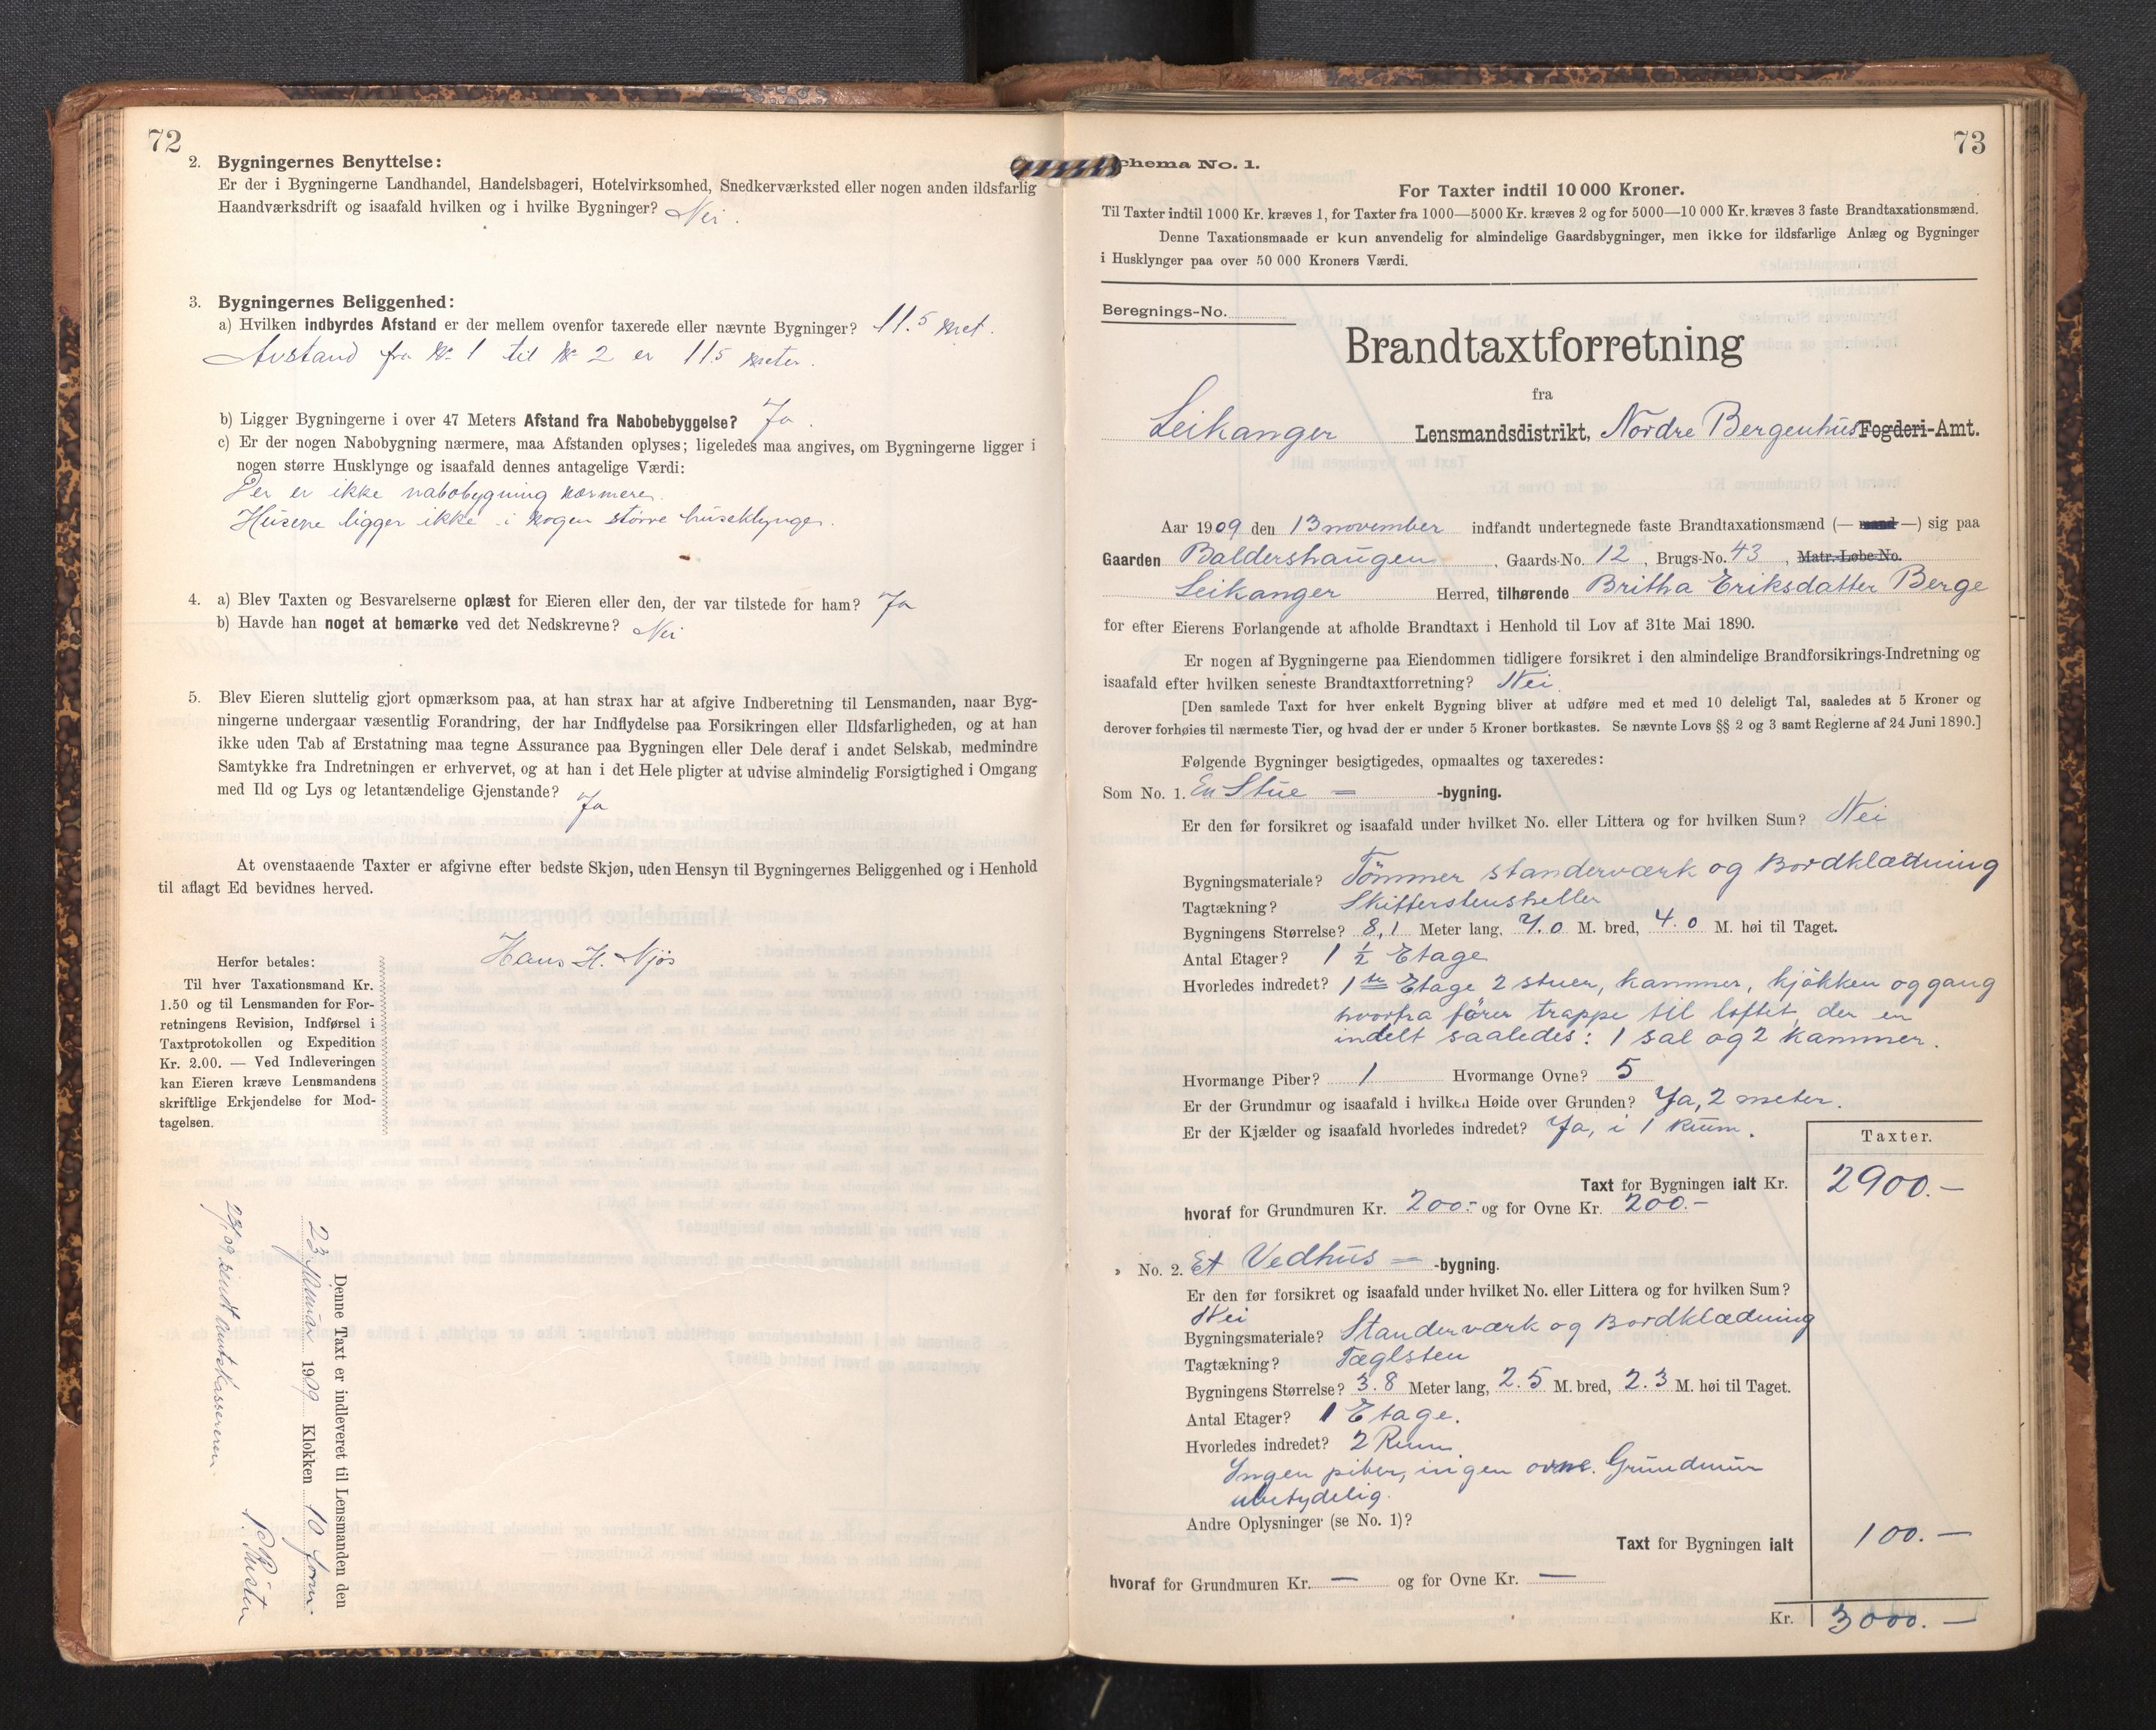 72
2. Bygningernes Benyttelse:
Er der i Bygningerne Landhandel, Handelsbageri, Hotelvirksomhed, Snedkerværksted eller nogen anden ildsfarlig
Haandværksdrift og isaafald hvilken og i hvilke Bygninger? Nei.
3. Bygningernes Beliggenhed:
a) Hvilken indbyrdes Afstand er der mellem ovenfor taxerede eller nævnte Bygninger? 11.5 met.
Avstand fra No 1 til No 2 er 11.5 meter.
b) Ligger Bygningerne i over 47 Meters Afstand fra Nabobebyggelse? Ja.
c) Er der nogen Nabobygning nærmere, maa Afstanden oplyses; ligeledes maa angives, om Bygningerne ligger i
nogen større Husklynge og isaafald dennes antagelige Værdi:
Der er ikke nabobygning nærmere.
Husene ligger ikke i nogen større huseklynge.
4. a) Blev Taxten og Besvarelserne oplæst for Eieren eller den, der var tilstede for ham? Ja
b) Havde han noget at bemærke ved det Nedskrevne? Nei
5. Blev Eieren sluttelig gjort opmærksom paa, at han strax har at afgive Indberetning til Lensmanden, naar Byg-
ningerne undergaar væsentlig Forandring, der har Indflydelse paa Forsikringen eller Ildsfarligheden, og at han
ikke uden Tab af Erstatning maa tegne Assurance paa Bygningen eller Dele deraf i andet Selskab, medmindre
Samtykke fra Indretningen er erhvervet, og at han i det Hele pligter at udvise almindelig Forsigtighed i Omgang
med Ild og Lys og letantændelige Gjenstande? Ja
At ovenstaaende Taxter er afgivne efter bedste Skjøn, uden Hensyn til Bygningernes Beliggenhed og i Henhold
til aflagt Ed bevidnes herved.
Hans H. Njøs
Herfor betales:
Til hver Taxationsmand Kr.
1.50 og til Lensmanden for For-
retningens Revision, Indførsel i
Taxtprotokollen og Expedition
Kr. 2.00. — Ved Indleveringen
kan Eieren kræve Lensmandens
skriftlige Erkjendelse for Mod-
tagelsen.
Denne Taxt er indleveret til Lensmanden den
23 1909 Klokken 10 form.
sendt amtskassereren.
73
chema No. 1.
For Taxter indtil 10 000 Kroner.
Til Taxter indtil 1000 Kr. kræves 1, for Taxter fra 1000—5000 Kr. kræves 2 og for 5000—10 000 Kr. kræves 3 faste Brandtaxationsmænd.
Denne Taxationsmaade er kun anvendelig for almindelige Gaardsbygninger, men ikke for ildsfarlige Anlæg og Bygninger
i Husklynger paa over 50 000 Kroners Værdi.
Beregnings-No.
Brandtaxtforretning
fra
Leikanger Lensmandsdistrikt, Nordre Bergenhus Fogderi-Amt.
Aar 1909 den 13 november indfandt undertegnede faste Brandtaxationsmænd (— mand —) sig paa
Gaarden Baldershaugen, Gaards-No. 12, Brugs-No. 43, Matr.-Løbe-No.
Leikanger Herred, tilhørende Britha Eriksdatter Berge
for efter Eierens Forlangende at afholde Brandtaxt i Henhold til Lov af 31te Mai 1890.
Er nogen af Bygningerne paa Eiendommen tidligere forsikret i den almindelige Brandforsikrings-Indretning og
isaafald efter hvilken seneste Brandtaxtforretning? Nei.
[Den samlede Taxt for hver enkelt Bygning bliver at udføre med et med 10 deleligt Tal, saaledes at 5 Kroner og
derover forhøies til nærmeste Tier, og hvad der er under 5 Kroner bortkastes. Se nævnte Lovs §§ 2 og 3 samt Reglerne af 24 Juni 1890.]
Følgende Bygninger besigtigedes, opmaaltes og taxeredes:
Som No. 1. En Stue = -bygning.
Er den før forsikret og isaafald under hvilket No. eller Littera og for hvilken Sum? Nei
Bygningsmateriale? Tömmer standerværk og Bordklædning
Tagtækning? Skifferstensheller
Bygningens Størrelse? 8,1 Meter lang, 7.0 M. bred, 4.0 M. høi til Taget.
Antal Etager? 1 ½ Etage
Hvorledes indredet? 1ste Etage 2 stuer, kammer, kjökken og gang
hvorfra fører trappe til loftet, der er
indelt saaledes: 1 sal og 2 kammer.
Hvormange Piber? 1 Hvormange Ovne? 5
Er der Grundmur og isaafald i hvilken Høide over Grunden? Ja, 2 meter.
Er der Kjælder og isaafald hvorledes indredet? Ja, i 1 Rum.
Taxter.
Taxt for Bygningen ialt Kr. 2900.—
hvoraf for Grundmuren Kr. 200.- og for Ovne Kr. 200.-
No. 2. Et Vedhus = -bygning.
Er den før forsikret og isaafald under hvilket No. eller Littera og for hvilken Sum?
Nei
Bygningsmateriale? Standerværk og Bordklædning
Tagtækning? Tæglsten
Bygningens Størrelse? 3.8 Meter lang, 2.5 M. bred, 2.3 M. høi til Taget.
Antal Etager? 1 Etage.
Hvorledes indredet? 2 Rum.
Ingen piber, ingen ovne. Grundmur
ubetydelig.
Andre Oplysninger (se No. 1)?
Taxt for Bygningen ialt 100.—
hvoraf for Grundmuren Kr. — og for Ovne Kr. —
Kr. 3000.—